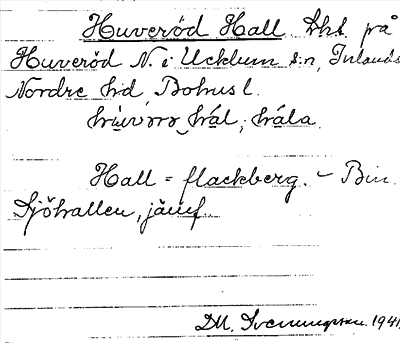 Huveröd Hall. Lhs. på
Huveröd N. i Ucklum s:n, Inlands
Nordre hd, Bohusl.
hùvərə hál; hála.
Hall = flackberg. – Bin.
Sjöhallen, jämf.
DM. Svenungsson. 1941